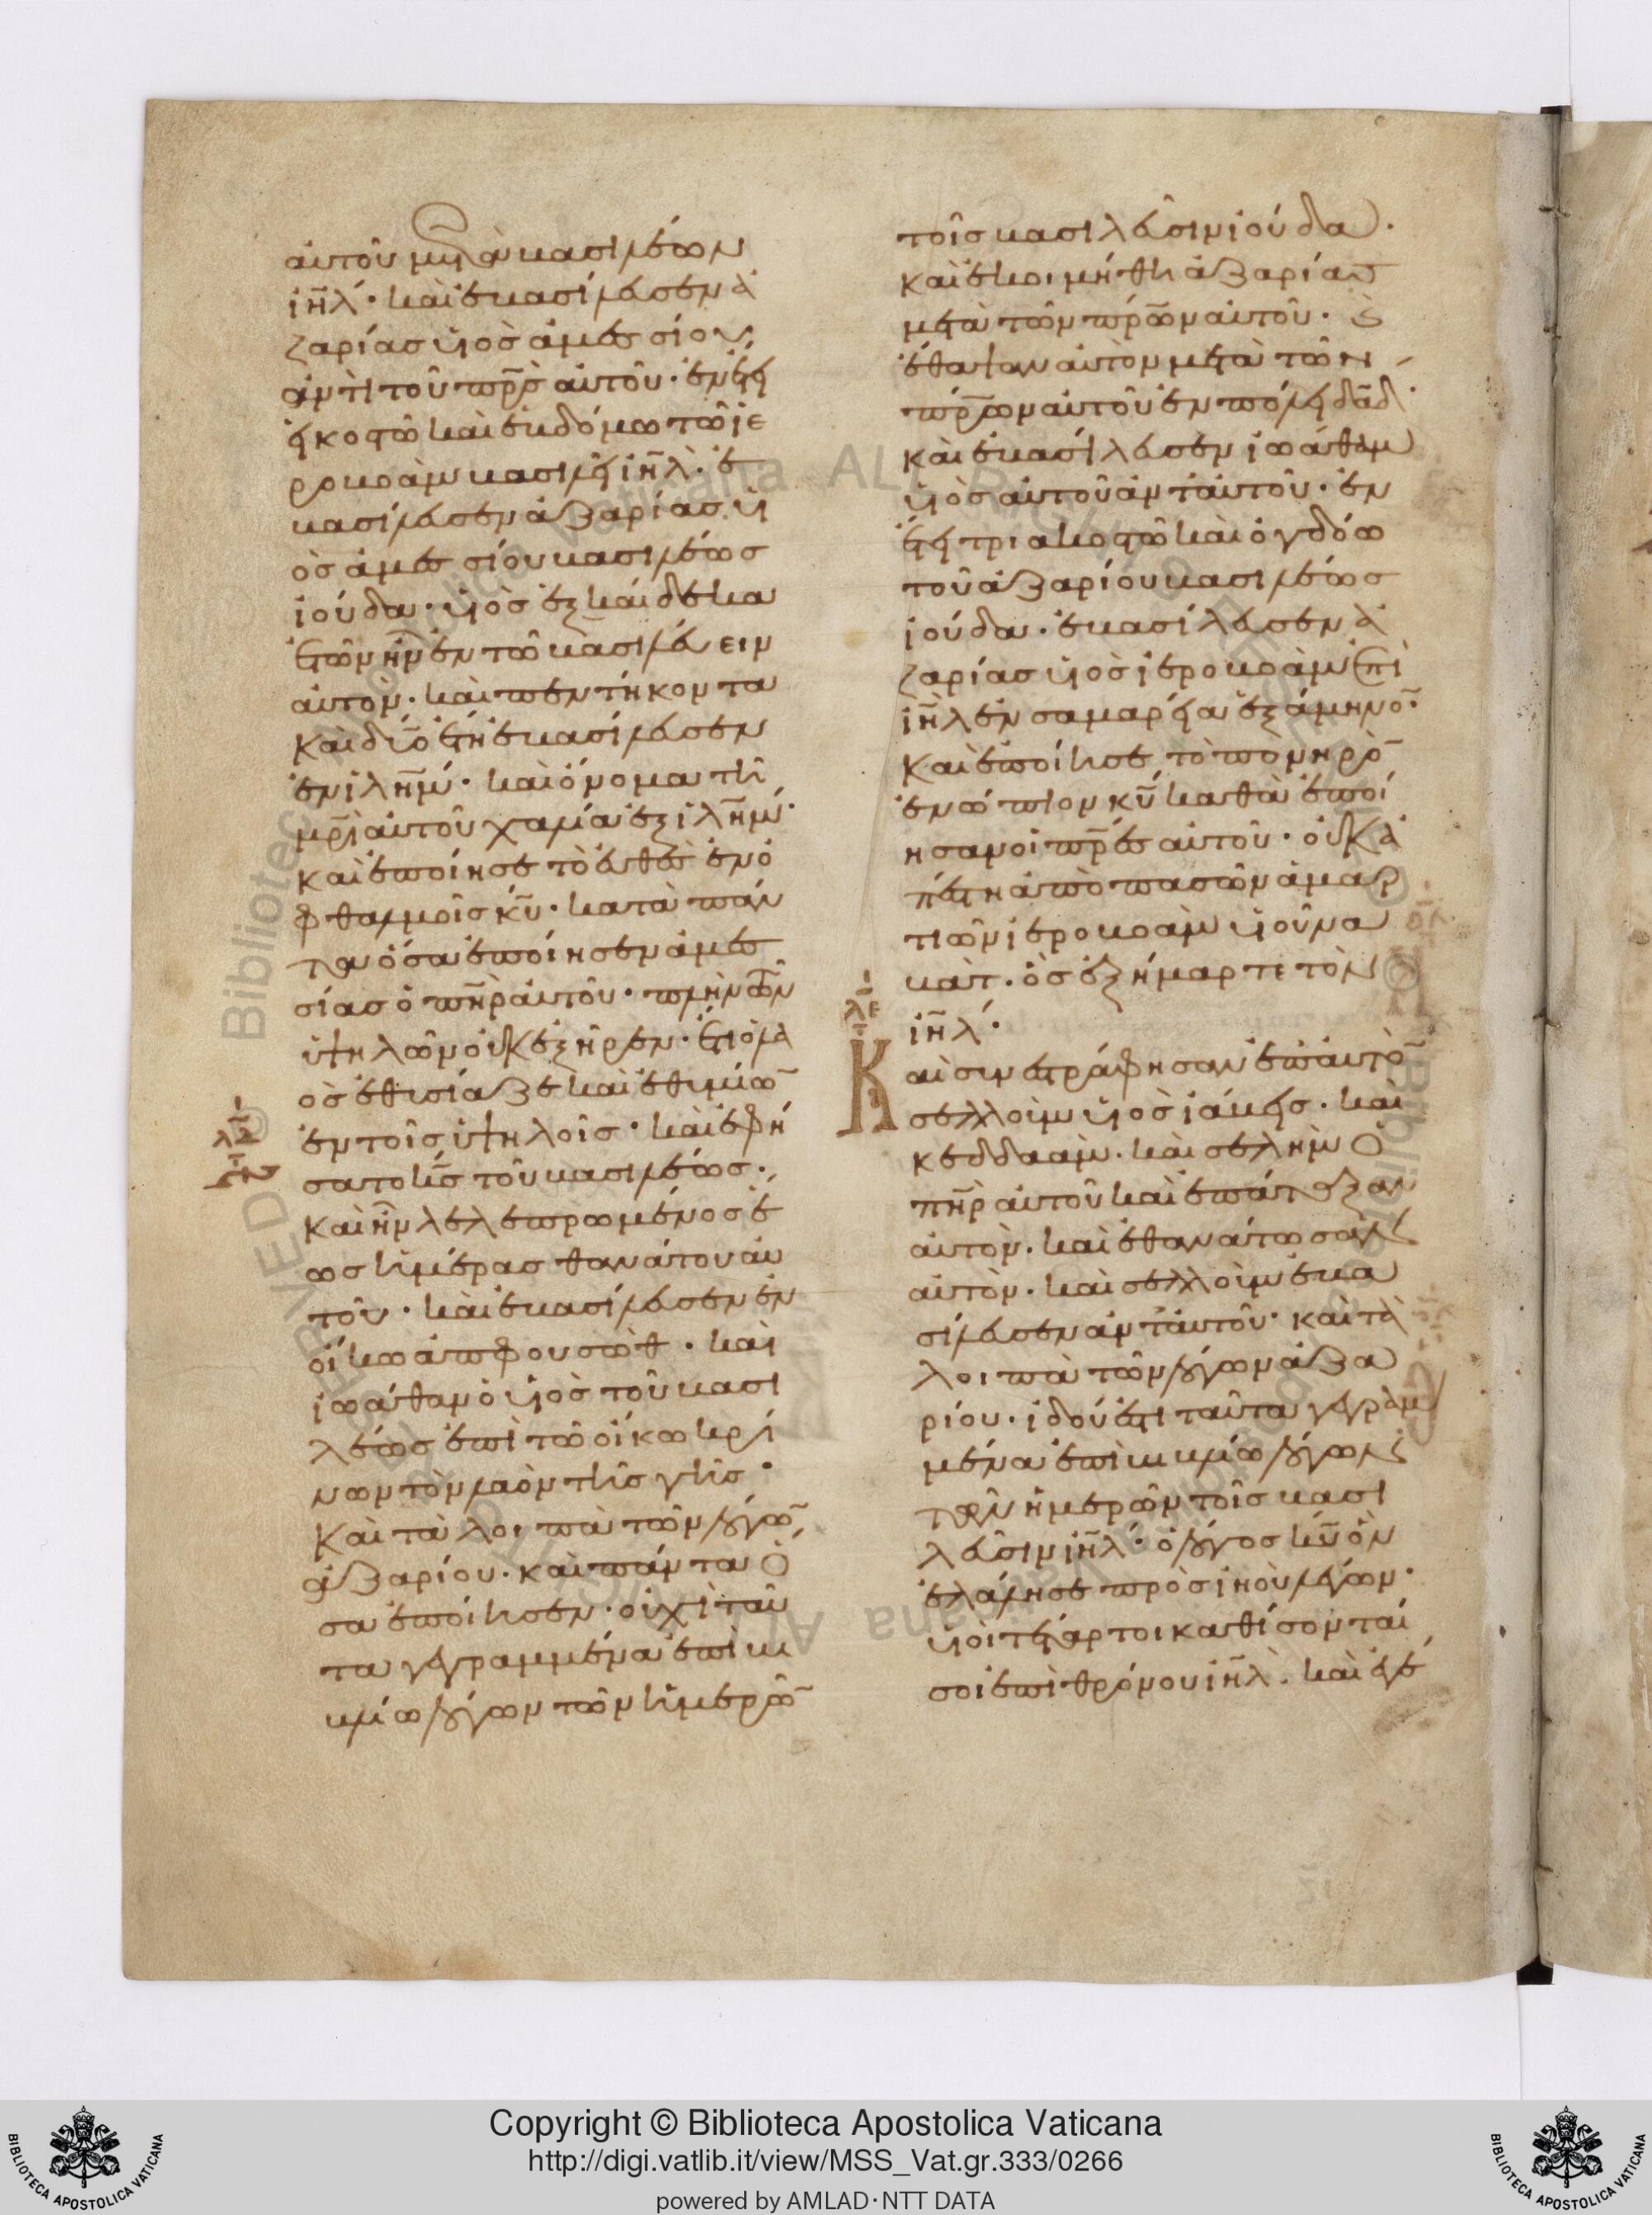 αὐτοῦ μετὰ βασιλέων
ἰη̄λ· καὶ ἐβασίλευσεν ἀ
ζαρίας υἱὸς ἀμεσσίου
ἀντὶ τοῦ πρ̄ς αὐτοῦ· ἐν ἔτει
εἰκοστῶ καὶ ἑβδόμω τῶ ἱε
ροβοὰμ βασιλεῖ ἰη̄λ· ἐ
βασίλευσεν ἀζαρίας υἱ
ὸς ἀμεσσίου βασιλέως
ἰούδα· υἱὸς ἑξκαίδεκα
ἐτῶν ἦν ἐν τῶ βασιλεύειν
αὐτὸν· καὶ πεντήκοντα
καὶ δύο ἔτη ἐβασίλευσεν
ἐν ἰλη̄μ· καὶ ὄνομα τῆ
μρ̄ι αὐτοῦ χαλία ἐξ ἰλη̄μ·
καὶ ἐποίησε τὸ εὐθὲς ἐν ὀ
φθαλμοῖς κ̄υ· κατὰ πάν
τα ὅσα ἐποίησεν ἀμεσ
σίας ὁ πη̄ρ αὐτοῦ· πλὴν τῶν
ὑψηλῶν οὐκ ἐξῆρεν· ἔτι ὁ λα
ὸς ἐθυσίαζε καὶ ἐθυμίω̄
ἐν τοῖς ὑψηλοῖς· καὶ ἐφή
σατο κ̄ς τοῦ βασιλέως·
καὶ ἦν λελεπρωμένος ἕ
ως ἡμέρας θανάτου αὐ
τοῦ· καὶ ἐβασίλευσεν ἐν
οἴκω ἀπφουσὼθ· καὶ
ἰωάθαμ ὁ υἱὸς τοῦ βασι
λέως ἐπὶ τῶ οἴκω κρί
νων τὸν λαὸν τῆς γῆς·
Καὶ τὰ λοιπὰ τῶν λόγω̄
ἀζαρίου· καὶ πάντα ὅ
σα ἐποίησεν· οὐχὶ ταῦ
τα γεγραμμένα ἐπὶ βι
βλίω λόγων τῶν ἡμερῶ̄
τοῖς βασιλεῦσιν ἰούδα·
καὶ ἐκοιμήθη ἀζαρίας
μετὰ τῶν πρ̄ων αὐτοῦ· καὶ
ἔθαψαν αὐτὸν μετὰ τῶν
πρ̄ων αὐτοῦ ἐν πόλει δᾱδ·
καὶ ἐβασίλευσεν ἰωάθαμ
υἱὸς αὐτοῦ ἀντ' αὐτοῦ· ἐν
ἔτει τριακοστῶ καὶ ὀγδόω
τοῦ ἀζαρίου βασιλέως
ἰούδα· ἐβασίλευσεν ἀ
ζαρίας υἱὸς ἱεροβοὰμ ἐπὶ
ἰη̄λ ἐν σαμαρεία ἑξάμηνο̄·
καὶ ἐποίησε τὸ πονηρὸ̄
ἐνώπιον κ̄υ καθὰ ἐποί
ησαν οἱ πρ̄ες αὐτοῦ· οὐκ ἀ
πέστη ἀπὸ πασῶν ἁμαρ
τιῶν ἱεροβοὰμ υἱοῦ να
βάτ· ὃς ἐξήμαρτε τὸν
ἰη̄λ·
λε
Καὶ συνεστράφησαν ἐπ' αὐτὸ̄
σελλοὶμ υἱὸς ἰάβεις· καὶ
κεδδαάμ· καὶ σελὴμ ὁ
πη̄ρ αὐτοῦ καὶ ἐπάταξαν
αὐτὸν· καὶ ἐθανάτωσαν
αὐτὸν· καὶ σελλοὶμ ἐβα
σίλευσεν ἀντ' αὐτοῦ· καὶ τὰ
λοιπὰ τῶν λόγων ἀζα
ρίου· ἰδού ἐστι ταῦτα γεγραμ
μένα ἐπὶ βιβλίω λόγων
τῶν ἡμερῶν τοῖς βασι
λεῦσιν ἰη̄λ· ὁ λόγος κ̄υ ὃν
ἐλάλησε πρὸς ἰηοὺ λέγων·
υἱοὶ τέταρτοι καθίσονταί
σοι ἐπὶ θρόνου ἰη̄λ· καὶ ἐγέ
Copyright © Biblioteca Apostolica Vaticana
http://digi.vatlib.it/view/MSS_Vat.gr.333/0266
powered by AMLAD·NTT DATA
BIBLIOTECA APOSTOLICA VATICANA
BIBLIOTECA APOSTOLICA VATICANA